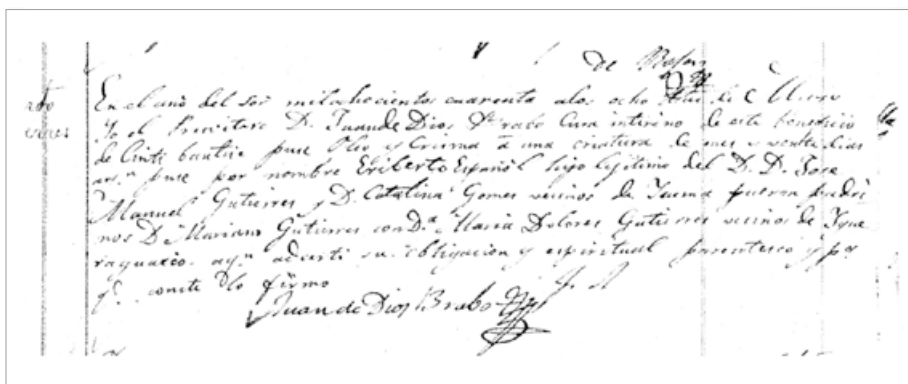 de
En el año del Sor milahocientos cuarenta alos ocho dias de Enero
Yo el Presvitero D. Juan de Dios Brabo Cura interino de este beneficio
de Cinti bautise puse Olio y Crisma á una criatura de mes y veinte dias
aqn puse por nombre Eriberto Español hijo lejitimo del D. D. Jose
Manuel Gutierres y Da Catalina Gomes vecinos de fueron padri
nos D. Mariano Gutierres con Da Maria Dolores Gutierres vecinos de Ygue
raguaico aqn adverti su obligacion y espiritual parentesco y pa
qe conste lo firmo
Juan de Dios Brabo